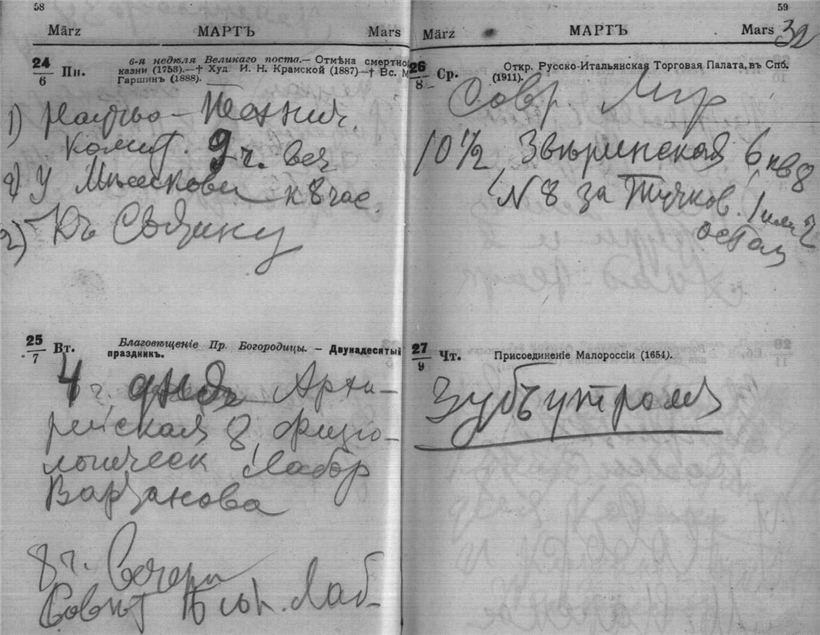 58
März МАРТЪ Mars
24/6 Пн. 6-я недѣля Великаго поста.— Отмѣна смертно
казни (1753).—† Худ. И. Н. Крамской (1887)—† Вс. М
Гаршинъ (1888).
1) Научно-Технич.
Комит. 9 ч. веч
2) У к 8 час.
2) Къ
25/7 Вт. Благовѣщеніе Пр. Богородицы. — Двунадесятый
праздникъ.
4 ч. дня Архі-
рейская 8 физіо-
логическ Лабор
Варзанова
8 ч. Вечера
Совѣт Псих. Лаб
59
März МАРТЪ Mars 32
26/8 Ср. Откр. Русско-Итальянская Торговая Палата, въ Спб.
(1911).
Совр. Мир
10 1/2 Звѣринская 6 кв 8
№ 8 за Тучков. 1 или 2
остан
27/9 Чт. Присоединеніе Малороссіи (1654).
Зубъ утромъ